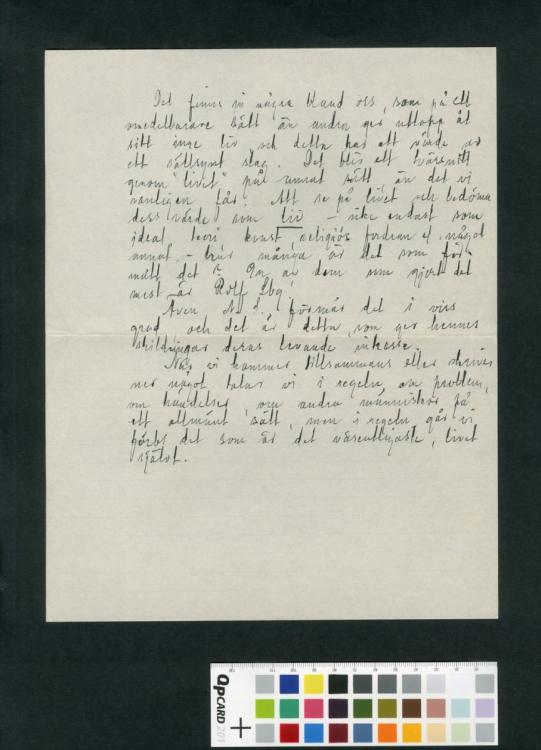 Det finns ju några bland oss, som på ett
omedelbarare sätt än andra ger utlopp åt
sitt inre liv och detta har ett värde av
ett sällsynt slag. Det blir ett tvärsnitt
genom "livet" på annat sätt än det vi
vanligen får. Att se på livet och bedöma
dess värde som liv – icke endast som
ideal teori konst, religiös fordran el. något
annat – hur många är det som för-
mått det? En av dem som gjort det
mest är Rolf Lbg.
Även förmår det i viss
grad och det är detta som ger hennes
skildringar deras levande intresse.
När vi kommer tillsammans eller skriver
ner något talar vi i regeln om problem,
om händelser, om andra människor på
ett allmänt sätt, men i regeln går vi
förbi det som är det väsentligaste, livet
självt.
OpCARD 201